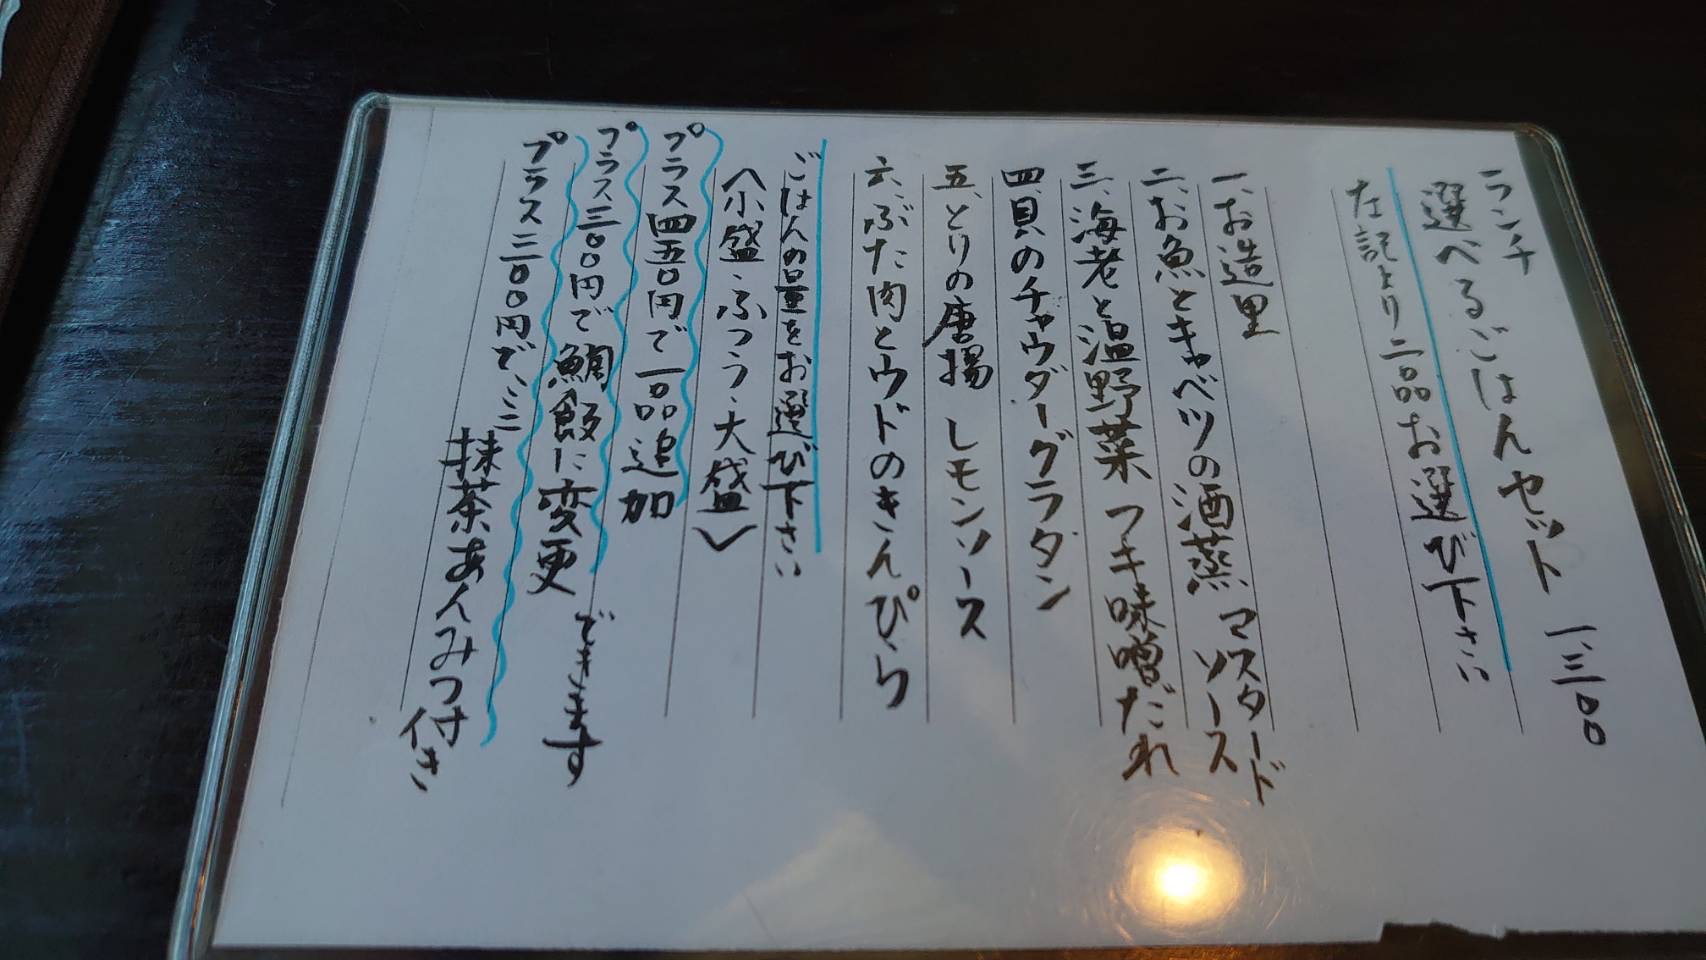 ランチ
選べるごはんセット 一、三〇〇
左記より二品お選び下さい
一、お造里
二、お魚とキャベツの酒蒸 マスタードソース
三、海老と温野菜 フキ味噌だれ
四、貝のチャウダーグラタン
五、とりの唐揚 レモンソース
六、ぶた肉とウドのきんぴら
ごはんの量をお選び下さい
〈小盛・ふつう・大盛〉
プラス四五〇円で一品追加
プラス三〇〇円で鯛飯に変更 できます
プラス三〇〇円で、ミニ抹茶あんみつ付き